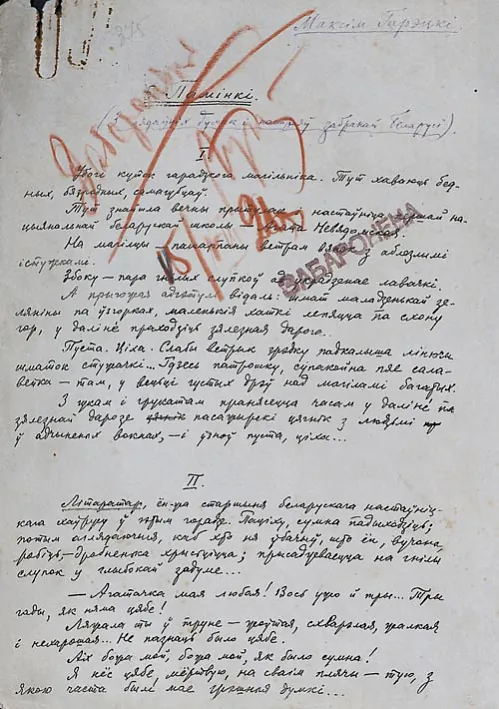 Максім Гарэцкі.
Памінкі.
забранай Беларусі).
I
Убогі куток гарадзкога магільніка. Тут хаваюць бед-
ных, бязродных, самагубцаў.
Тут знайшла вечны настаўніца першай на-
цыянальнай беларускай школы – Невядомская.
На магілцы – пашарпаны ветрам вянок з аблезлымі
істужкамі.
Збоку – пара гнілых слупкоў ад лавачкі.
А прыгожая адгэтуль відаль: шмат маладзенькай зе-
ляніны па ўзгорках, маленькія хаткі лепяцца па схону
гор, у далінė праходзіць зялезная дарога.
Пуста. Ціха. Слабы ветрык зрэдку падкалыша
шматок стужачкі... Гдзесь патрошку, супакатна пяе сала-
вейка – там, у вецці густых дрэў над магіламі багатых.
З гукам і грукатам пранясецца часам у даліне па
зялезнай дарозе пасажырскі цягнік з людзьмі
ў адчыненых вокнах, – і ўзноў пуста, ціха...
ЗАБАРОНЕНА
II.
Літаратар, ён-ра старшыня беларускага настаўніц-
кага хаўрусу ў тым горадзе. Паціху, сумна падыходзіць;
потым аглядаючыся, каб хто ня ўбачыў, што ён, вучоны,
робіць – дробненька хрысьціцца; прысаджваецца на гнілы
слупок у глыбокай задуме...
– Агатачка мая любая! Вось ужо й тры... Тры
гады, як няма цябе!
Ляжала ты ў труне – жоўтая, схварэлая, жалкая
і нехарошая... Не пазнаць было цябе.
Аіх божа мой, божа мой, як было сумна!
Я нёс цябе, мёртвую, на сваім плячы – тую, з
якою часта былі мае грэшныя думкі...